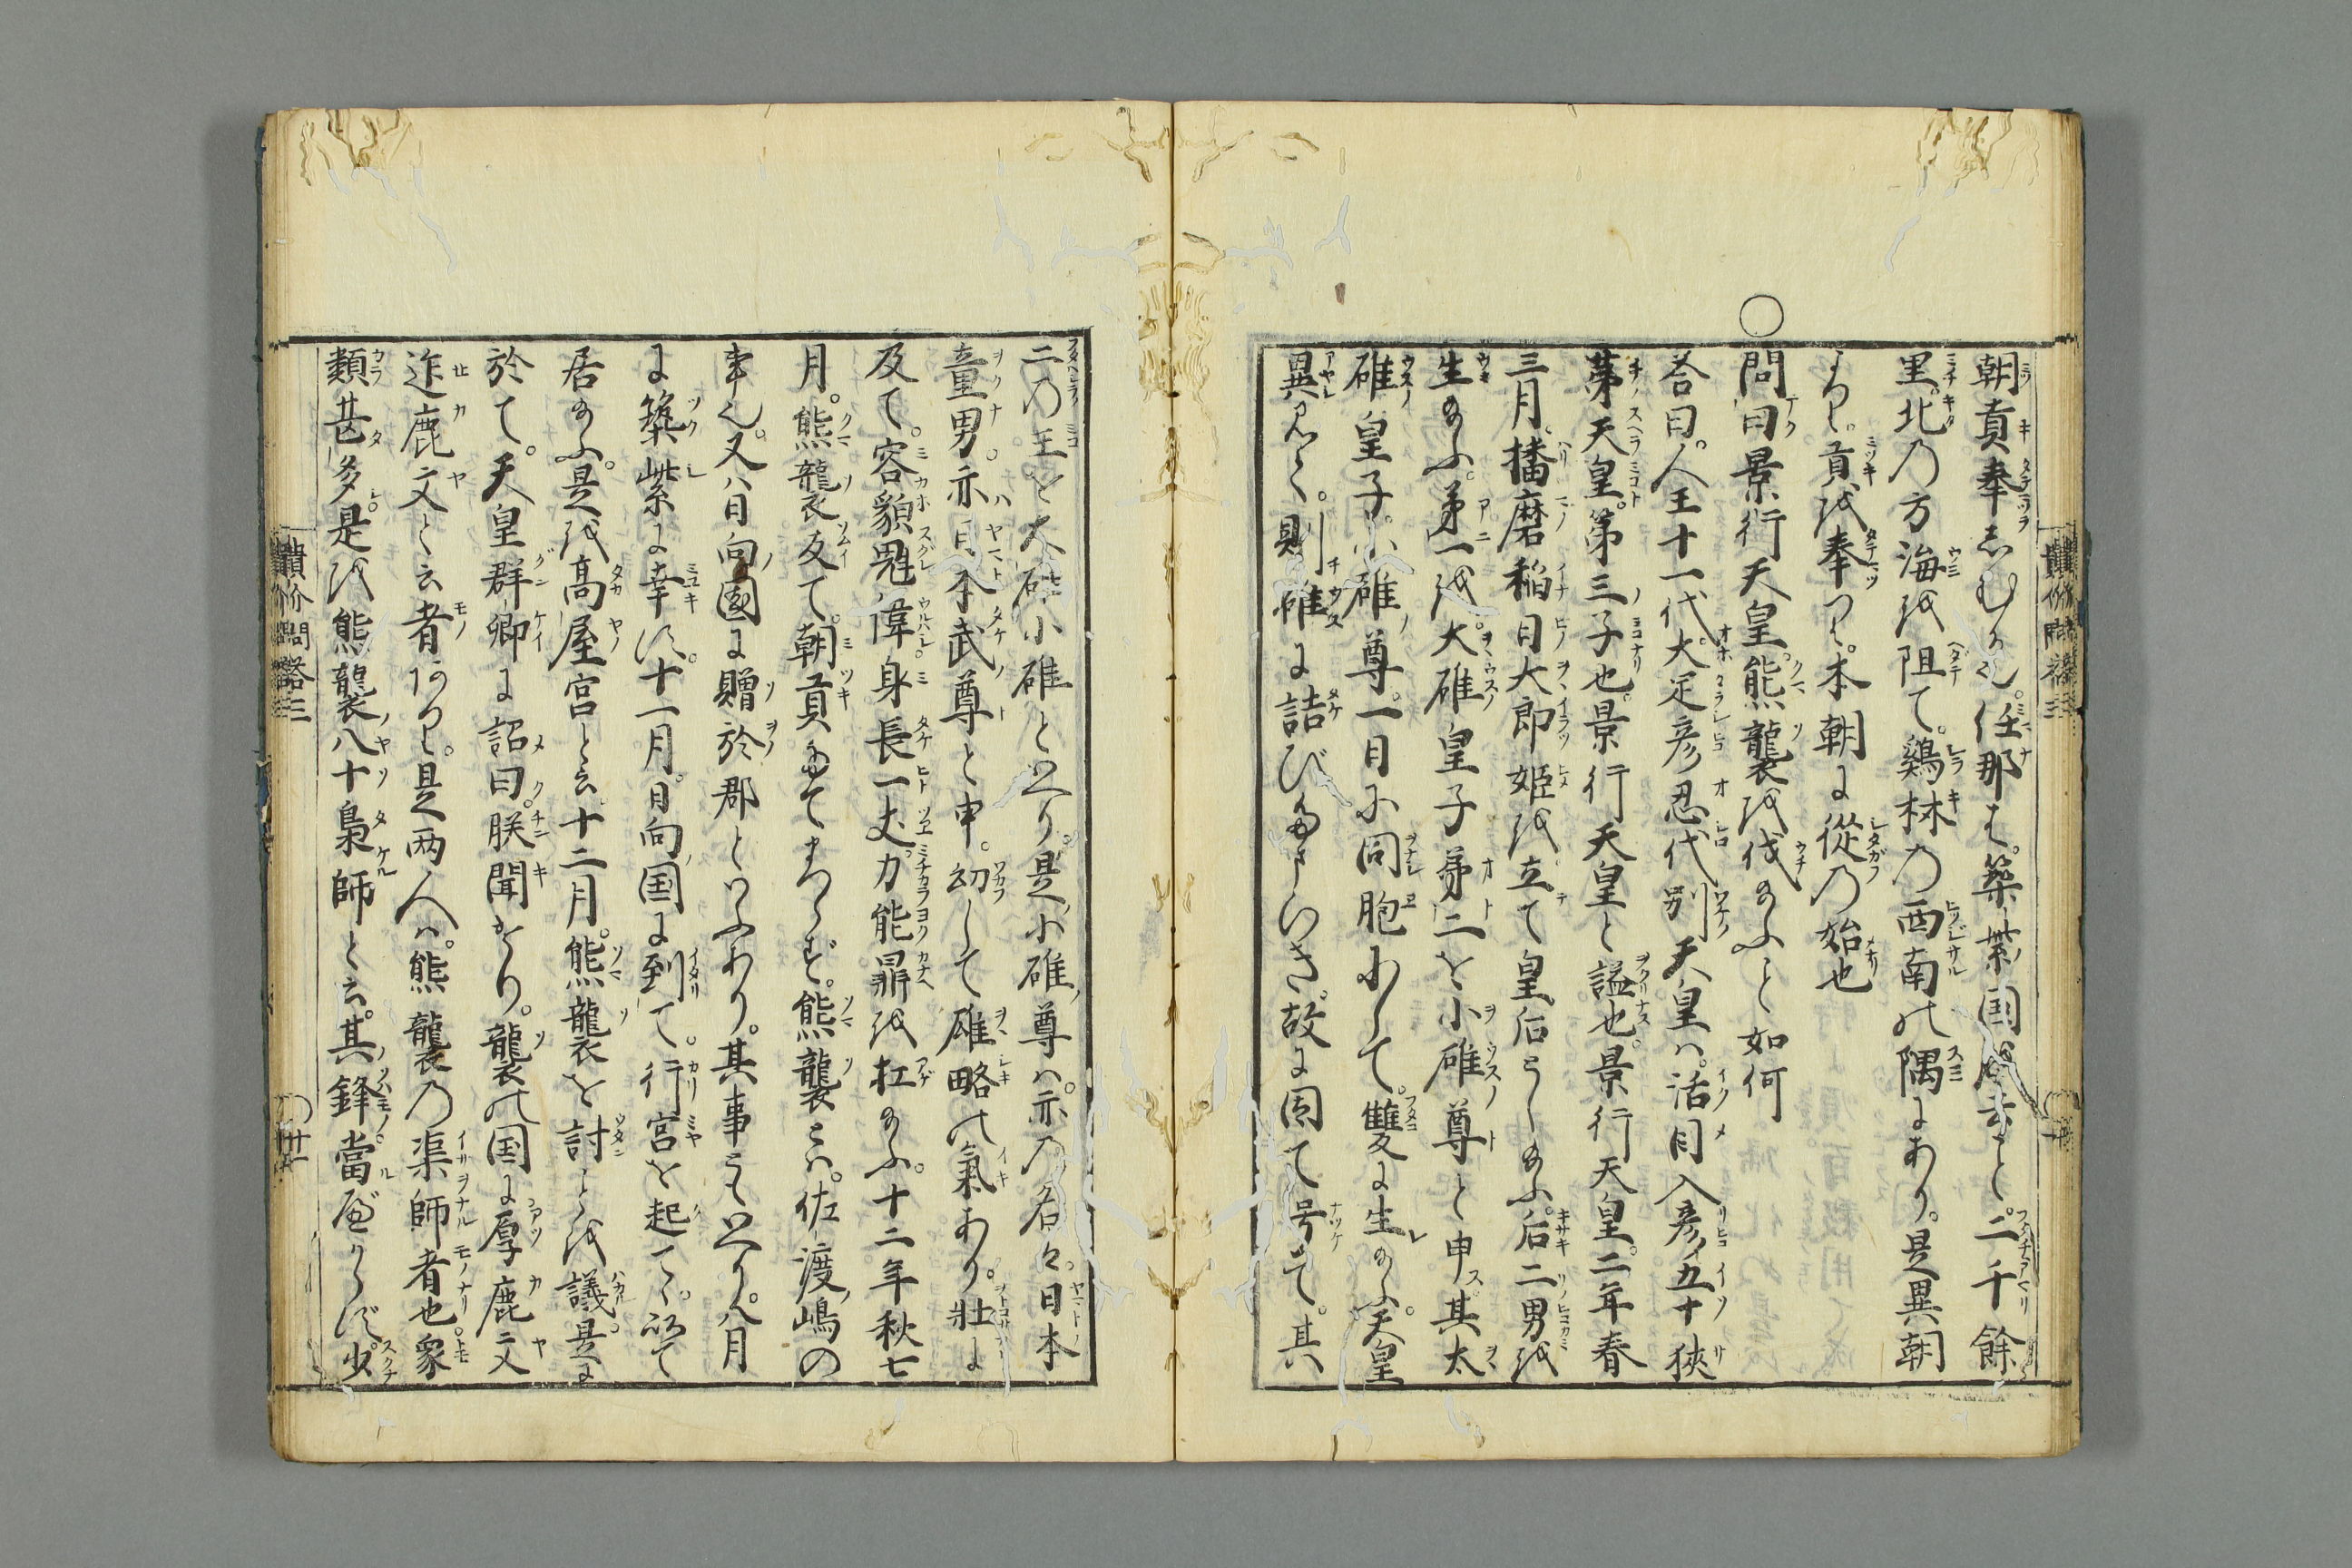 朝貢奉しむる也。任那は。築紫国を去こと。二千餘
里。北の方海を阻て。鷄林の西南の隅にあり。是異朝
より。貢を奉つり。本朝に從の始也
〇問曰景行天皇。熊襲を伐のふこと如何
荅曰。人王十一代。大足彦忍代別天皇は。活目入彦五十狹
茅天皇。第三子也。景行天皇と謚也。景行天皇。二年春
三月。播磨稲日大郎姫を立て皇后としのふ。后二男を
生のふ。第一を。大碓皇子第二を小碓尊と申。其太
碓皇子。小碓尊。一日に同胞にして。雙に生のふ。天皇
異み。則碓に詰びたまひき。故に因て号て。其
二の王を大碓小碓と云り。是小碓尊は。亦の名は。日本
童男。亦日本武尊と申。幼して雄略の氣あり。壮に
及て。容貌魁偉身長一丈。力能鼎を杠のふ。十二年秋七
月。熊襲反て。朝貢たてまつらず。熊襲とは。佐渡嶋の
事也。又八日向國に贈於郡といふあり。其事とも云り。八月
に築紫に幸す。十一月。日向国に到て。行宮を起て。以て
居のふ。是を高屋宮と云十二月。熊襲を討ことを議。是に
於て。天皇群卿に詔曰。朕聞けり。襲の国に厚鹿文
迮鹿文と云者あり。是両人は。熊襲の渠師者也。衆
類甚多。是を熊襲八十梟師と云。其鋒當べからず。少